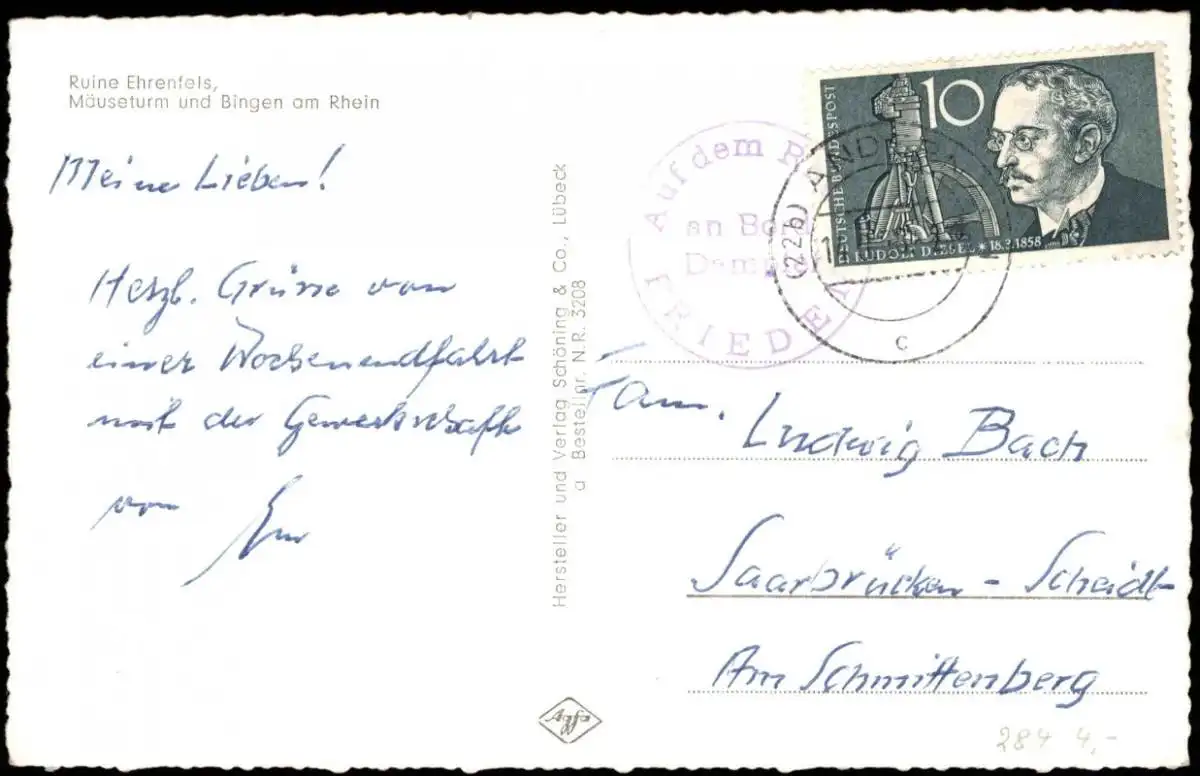 Ruine Ehrenfels,
Mäuseturm und Bingen am Rhein
Meine Lieben!
Herzl. Grüsse von
einer Wochenendfahrt
mit der Gewerkschaft
von
Hersteller und Verlag Schöning & Co., Lübeck
a Bestellnr. N.R. 3208
Agfa
Auf dem
an Bord
FRIEDE
(22b) AND
c
10
DEUTSCHE BUNDESPOST
RUDOLF DIESEL * 18.3.1858
Fam. Ludwig Bach
Saarbrücken - Scheidt
Am Schmittenberg
284 4,-